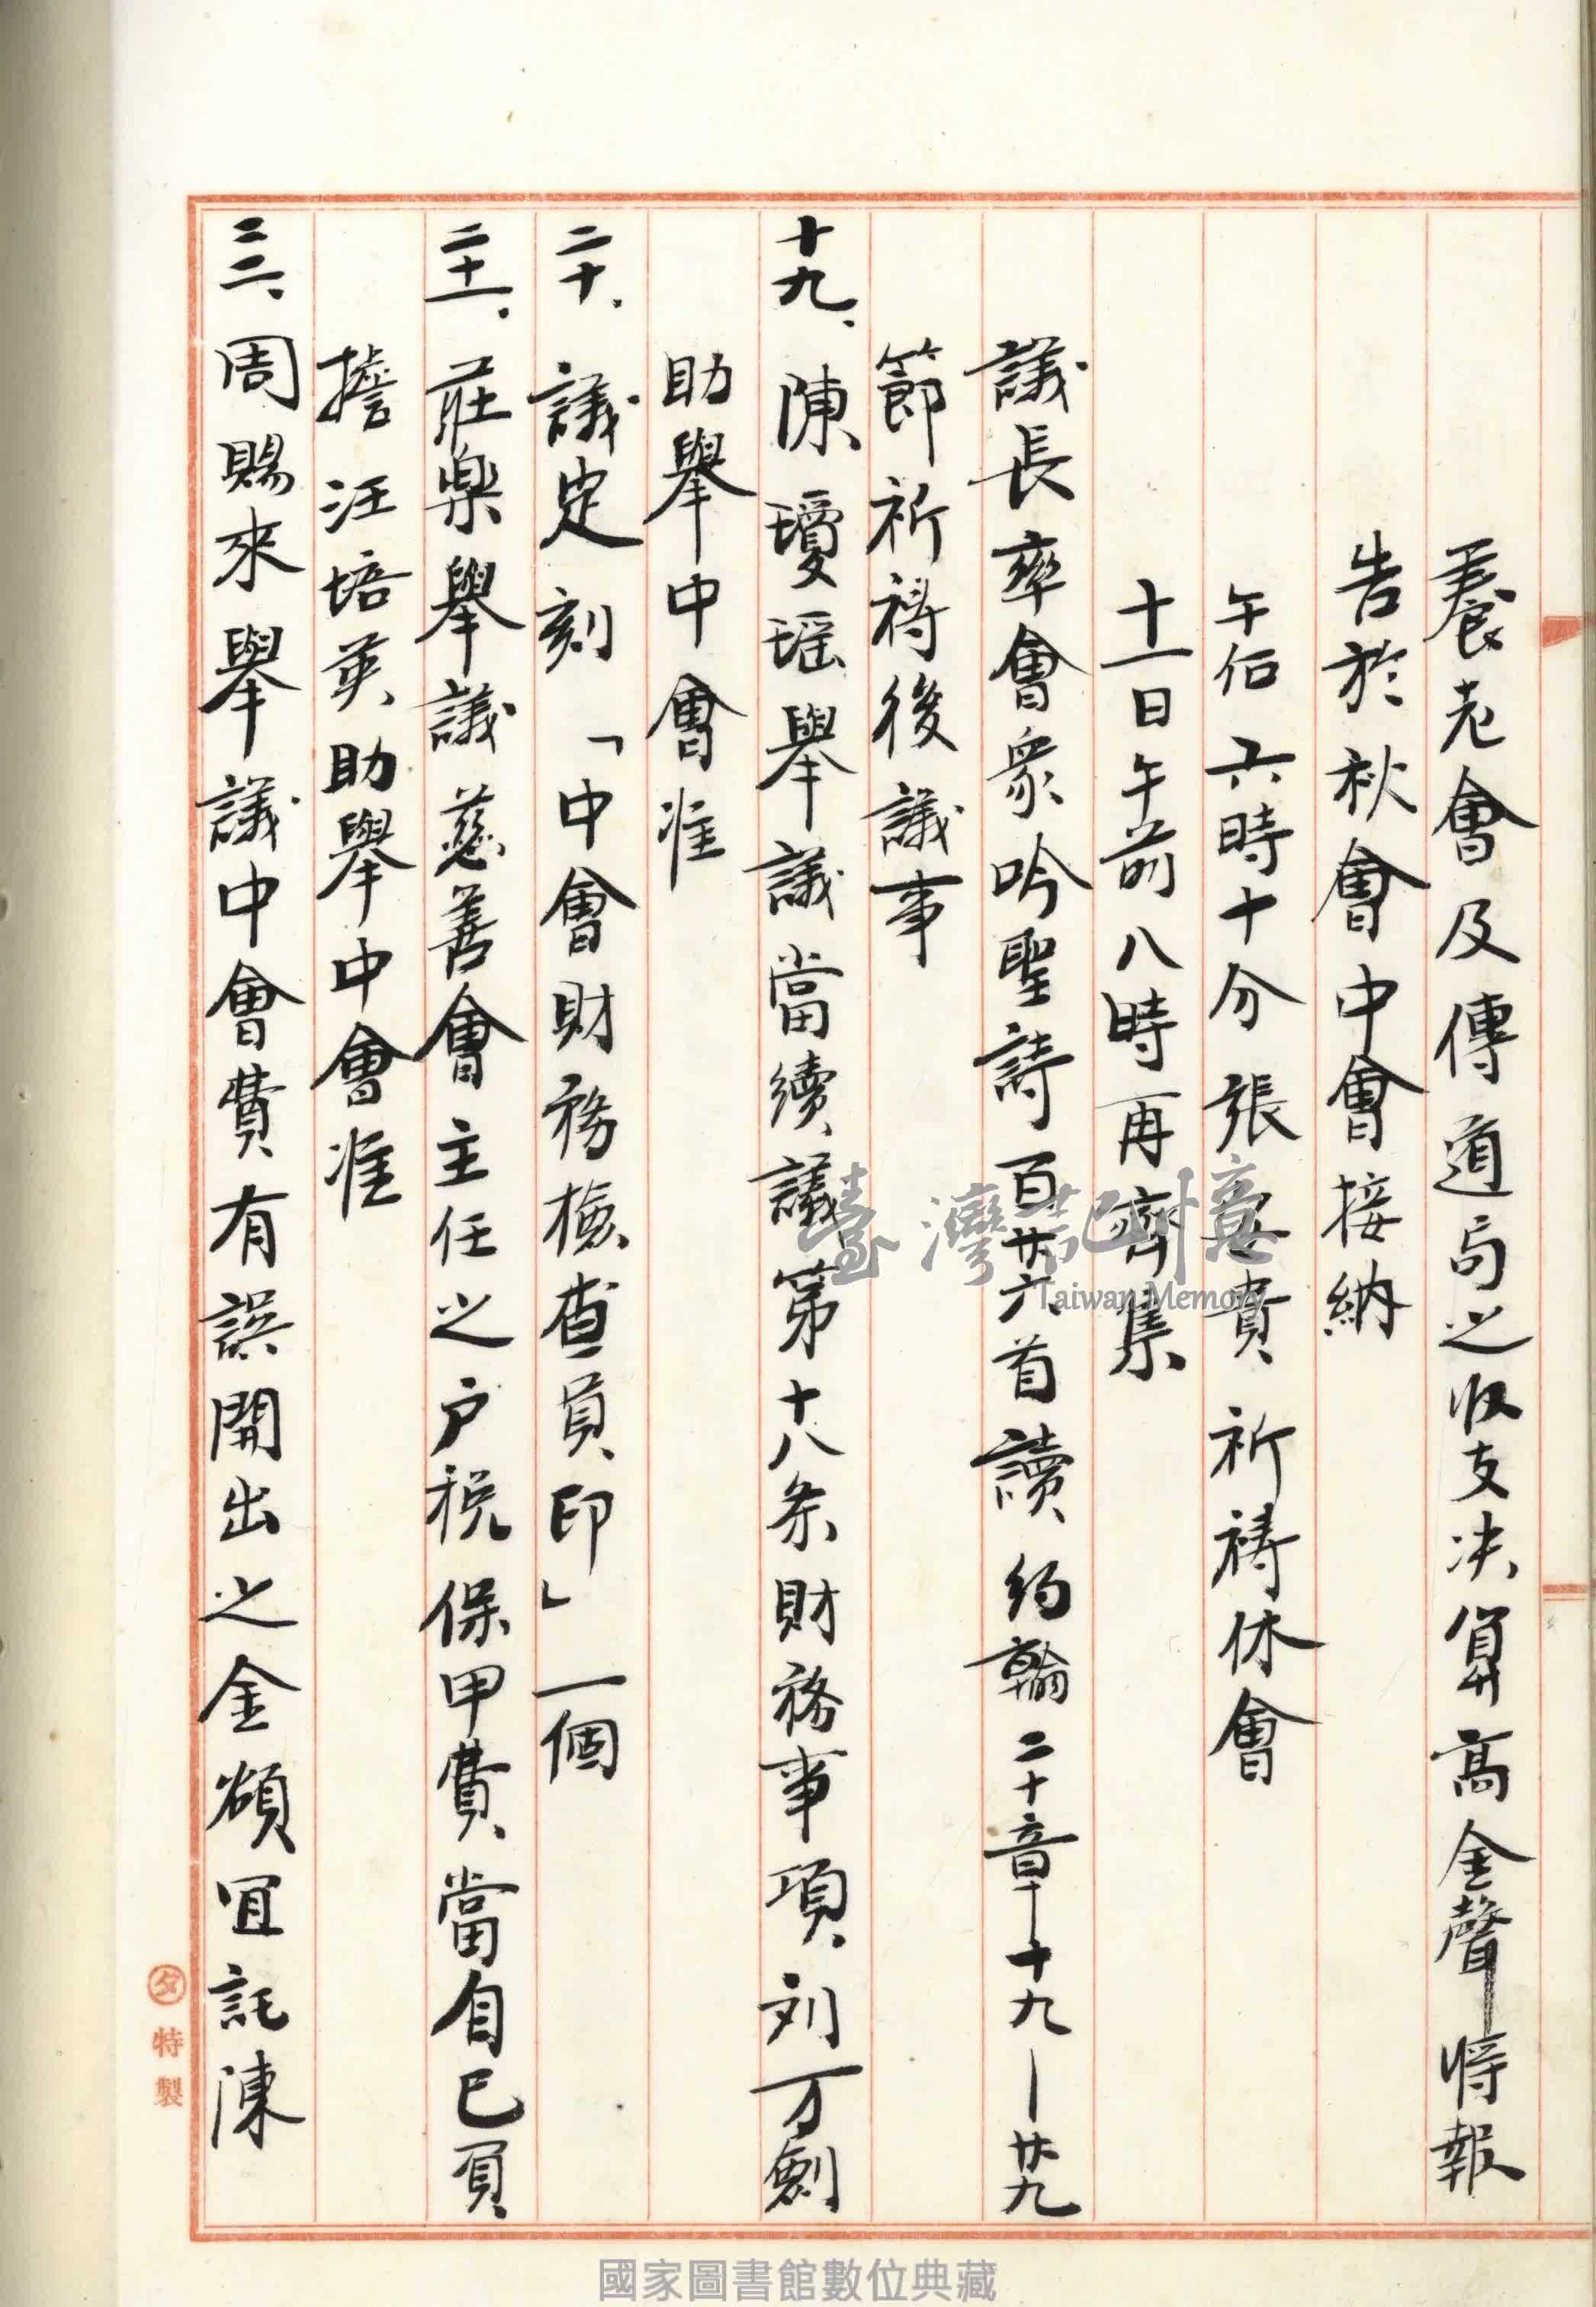 養老會及傳道局之收支决算高金聲將報
告於秋會中會接納
午后六時十分張 貴祈禱休會
十一日午前八時再齊集
議長率會衆吟聖詩百廿六首讀約翰二十章十九—廿九
節祈禱後議事
十九、陳瓊瑶舉議當續議第十八条財務事項刘万
助舉中會准
二十、議定刻「中會財務檢查員印」一個
二十一、莊樂舉議慈善會主任之户税保甲費當自己負
擔汪培英助舉中會准
二二、周賜來舉議中會費有誤開出之金額宜託陳
夕特製
臺灣記憶
Taiwan Memory
國家圖書館數位典藏